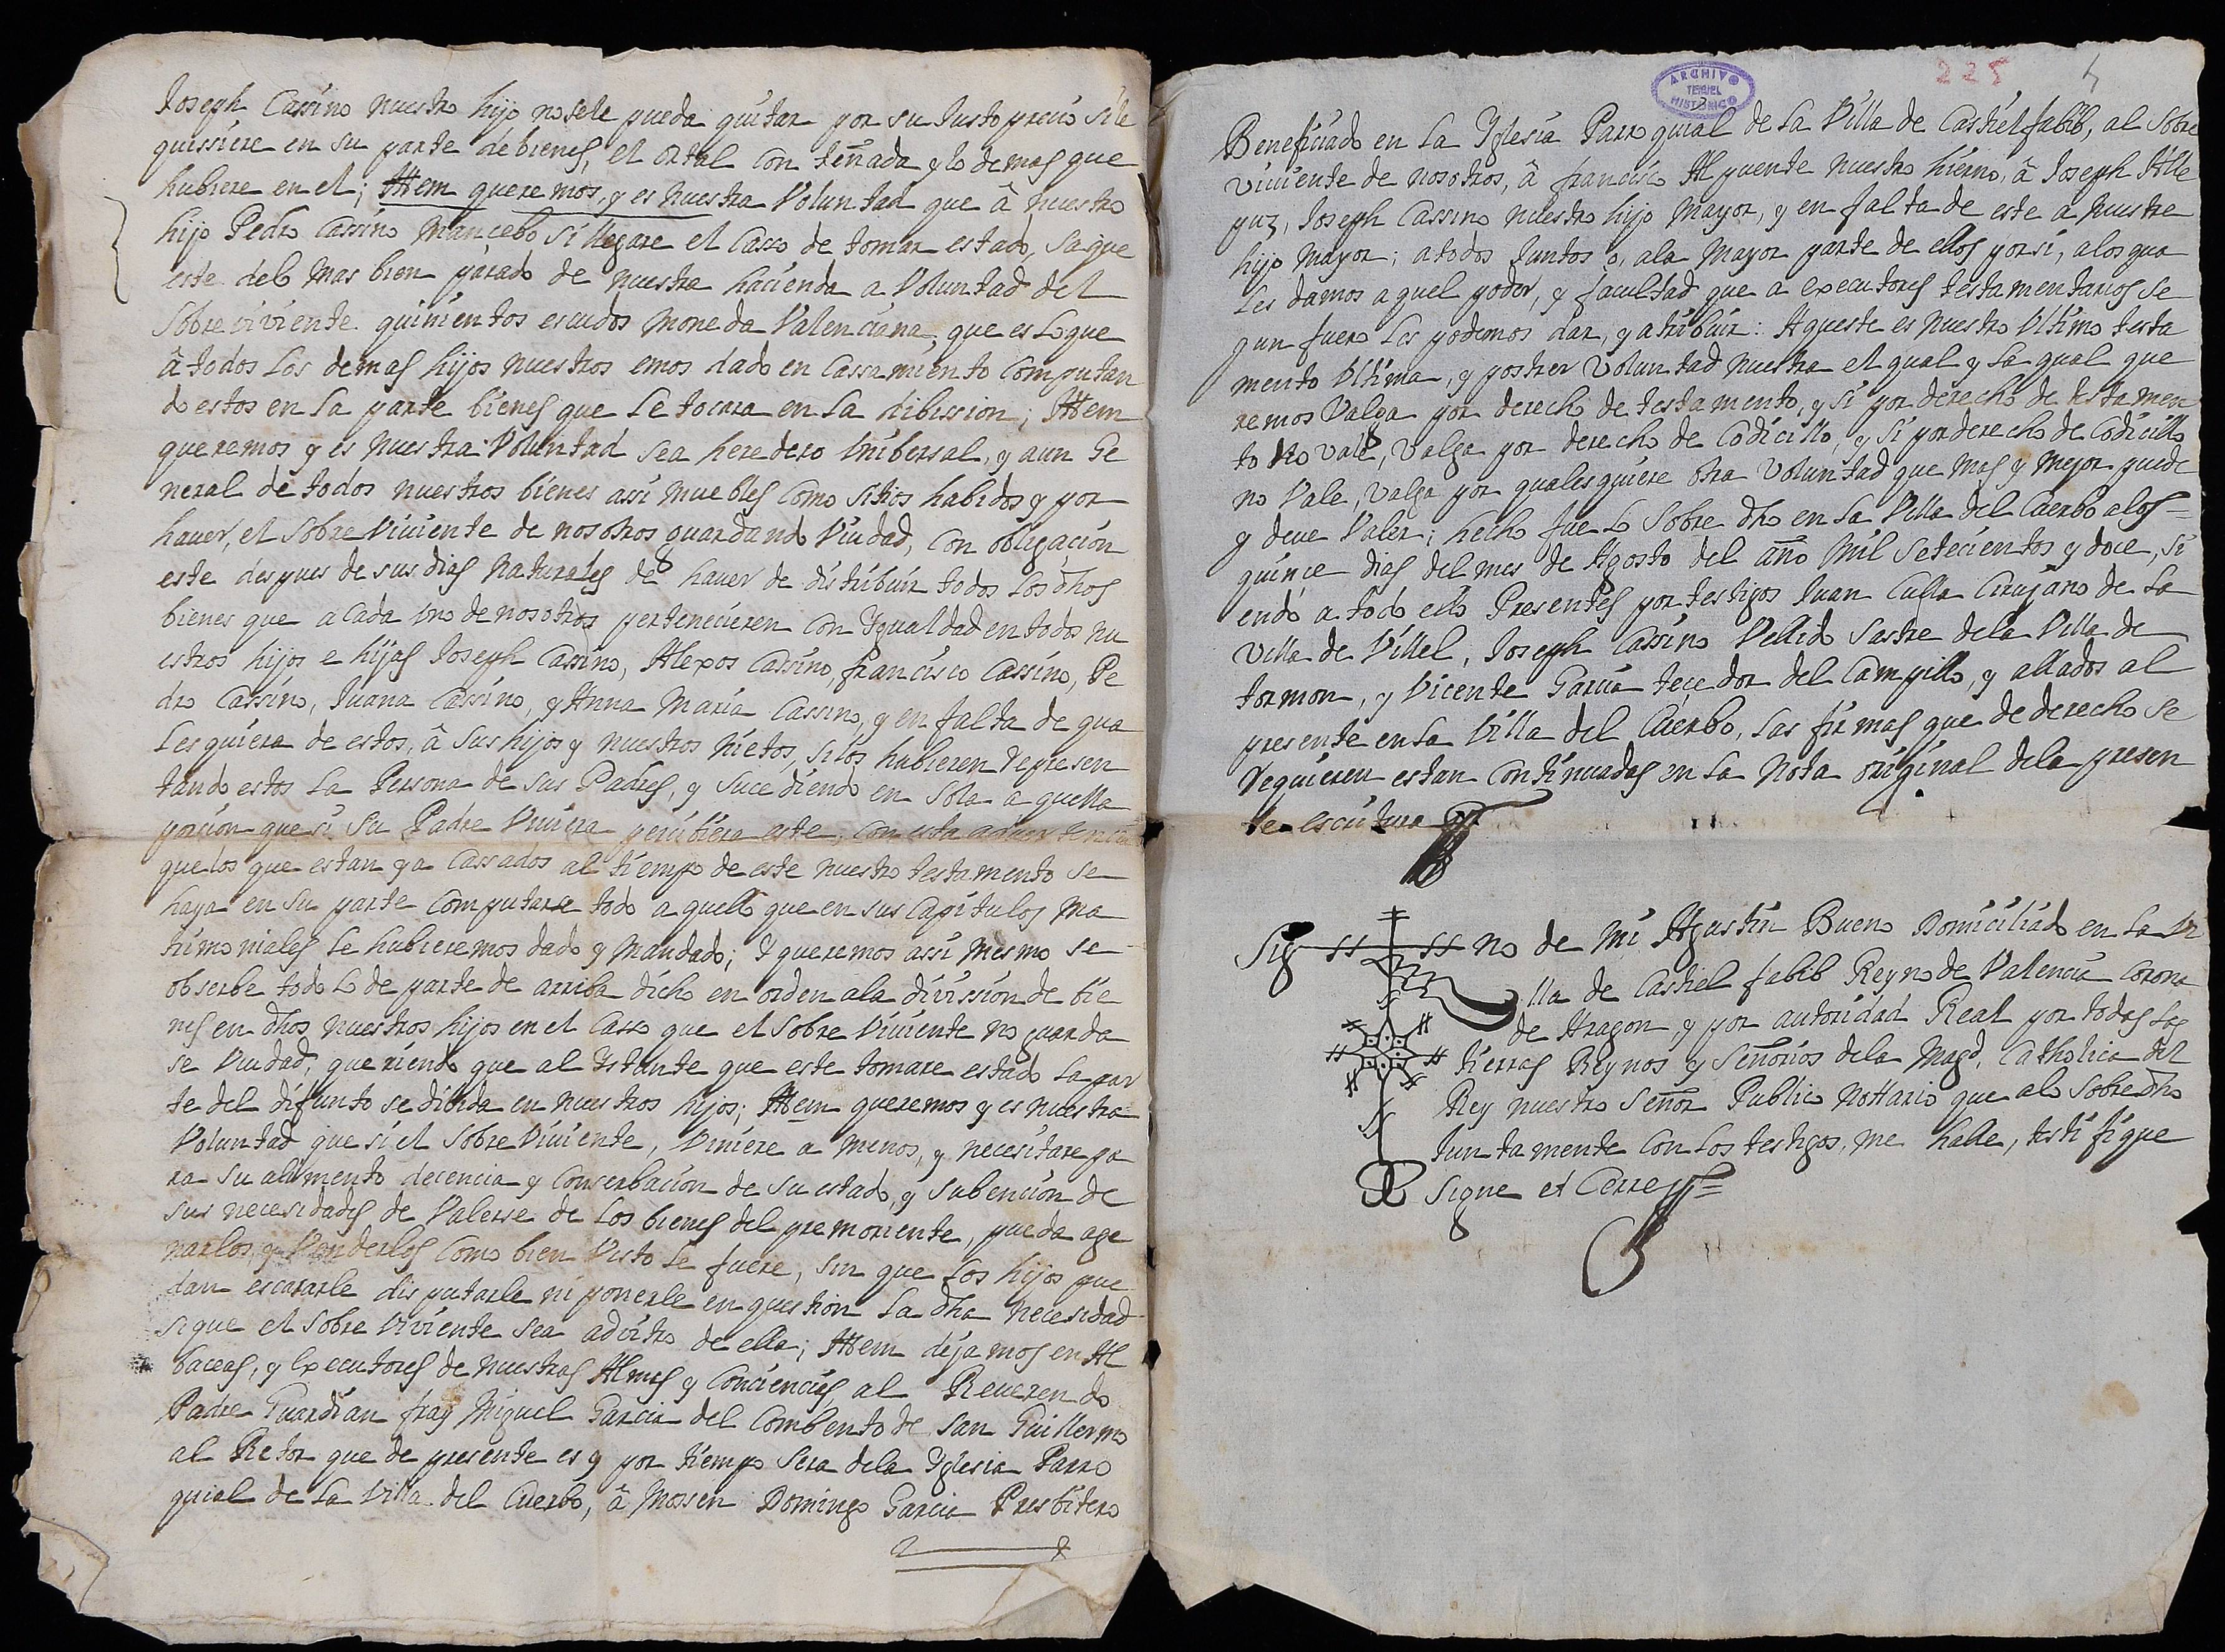 Joseph Cassino nuestro hijo no se le pueda quitar por su Justo precio si le
quissiere en su parte de bienes, el Ortal con teñada y lo demas que
hubiere en el; Ittem queremos, y es nuestra Voluntad que â nuestro
hijo Pedro Cassino Mancebo si llegare el Casso de tomar estado, saque
este delo mas bien parado de nuestra hacienda a Voluntad del
sobreviviente quinientos escudos moneda Valenciana, que es lo que
â todos los demas hijos nuestros emos dado en Cassamiento Computan
do estos en la parte bienes que le tocara en la dibission; Ittem
queremos y es nuestra Voluntad sea heredero Unibersal, y aun Ge
neral de todos nuestros bienes assi muebles como sitios habidos y por
haver, el sobre Viviente de nosotros guardando Viudad, con obligacion
este despues de sus dias naturales de haver de distribuir todos los dhos
bienes que a cada uno de nosotros pertenecieren con Ygualdad en todos nu
estros hijos e hijas Joseph Cassino, Alexos Cassino, francisco Cassino, Pe
dro Cassino, Juana Cassino, y Anna Maria Cassino, y en falta de qua
lesquiera de estos, â sus hijos y nuestros nietos, si los hubieren represen
tando estos la Persona de sus Padres, y sucediendo en sola aquella
porcion que si su Padre Viviera percibiera este, con esta advertencia
que los que estan ya Cassados al tiempo de este nuestro testamento se
haya en su parte Computarse todo aquello que en sus Capitulos Ma
trimoniales le hubieremos dado y Mandado; Y queremos assi mesmo se
observe todo lo de parte de arriba dicho en orden ala division de bie
nes en dhos nuestros hijos en el Casso que el sobre Viviente no guarda
se Viudad, queriendo que al Ystante que este tomare estado la par
te del difunto se dibida en nuestros hijos; Ittem queremos y es nuestra
Voluntad que si el sobre Viviente, Viniere a menos, y necesitare pa
ra su alimento decencia y Conserbacion de su estado, y subencion de
sus necesidades de Valerse de los bienes del premoriente, pueda age
narlos, y Venderlos como bien Visto le fuere, sin que los hijos pue
dan escararle disputarle ni ponerle en question la dha necesidad
si que el sobre Viviente sea advitro de ella; Ittem dejamos en Al
baceas, y Executores de nuestras Almas y Conciencias al Reverendo
Padre Guardian fray Miguel Garcia del Combento de San Guillermo
al Retor que de presente es y por tiempo sera dela Yglesia Parro
quial de la Villa del Cuerbo, â Mossen Domingo Garcia Presbitero
ARCHIVO
TERUEL
HISTORICO
225
Beneficiado en la Yglesia Parroquial de la Villa de Castielfabib, al sobre
viviente de nosotros, â francisco Alpuente nuestro hierno, â Joseph Alle
puz, Joseph Cassino nuestro hijo mayor, y en falta de este a nuestro
hijo mayor; a todos Juntos o, ala mayor parte de ellos por si, alos qua
les damos aquel poder, y facultad que a executores testamentarios se
gun fuero les podemos dar, y atribuir: Aqueste es nuestro Ultimo testa
mento Ultima, y postrer Voluntad nuestra el qual y la qual que
remos Valga por derecho de testamento, y si por derecho de testamen
to no vale, valga por derecho de Codicillo, y si por derecho de Codicillo
no Vale, valga por qualesquiere otra voluntad que mas y mejor puede
y deve Valer; hecho fue lo sobre dho en la Villa del Cuerbo alos =
quince dias del mes de Agosto del año Mil setecientos y doce, si
endo a todo ello Presentes por testigos Juan Calla Cirujano de la
Villa de Villel, Joseph Cassino Vellido Sastre dela Villa de
tormon, y Vicente Garcia tecedor del Campillo, y allados al
presente en la Villa del Cuerbo, las firmas que de derecho se
requieren estan Continuadas en la Nota original dela presen
te escritura
Sig no de Mi Agustin Bueno Domiciliado en la Vi
lla de Castiel fabib Reyno de Valencia Corona
de Aragon, y por autoridad Real por todas las
tierras Reynos y Señorios dela Magd. Catholica del
Rey nuestro Señor Publico Nottario que alo sobre dho
Juntamente con los testigos, me halle, testifique
Signe et Cerre